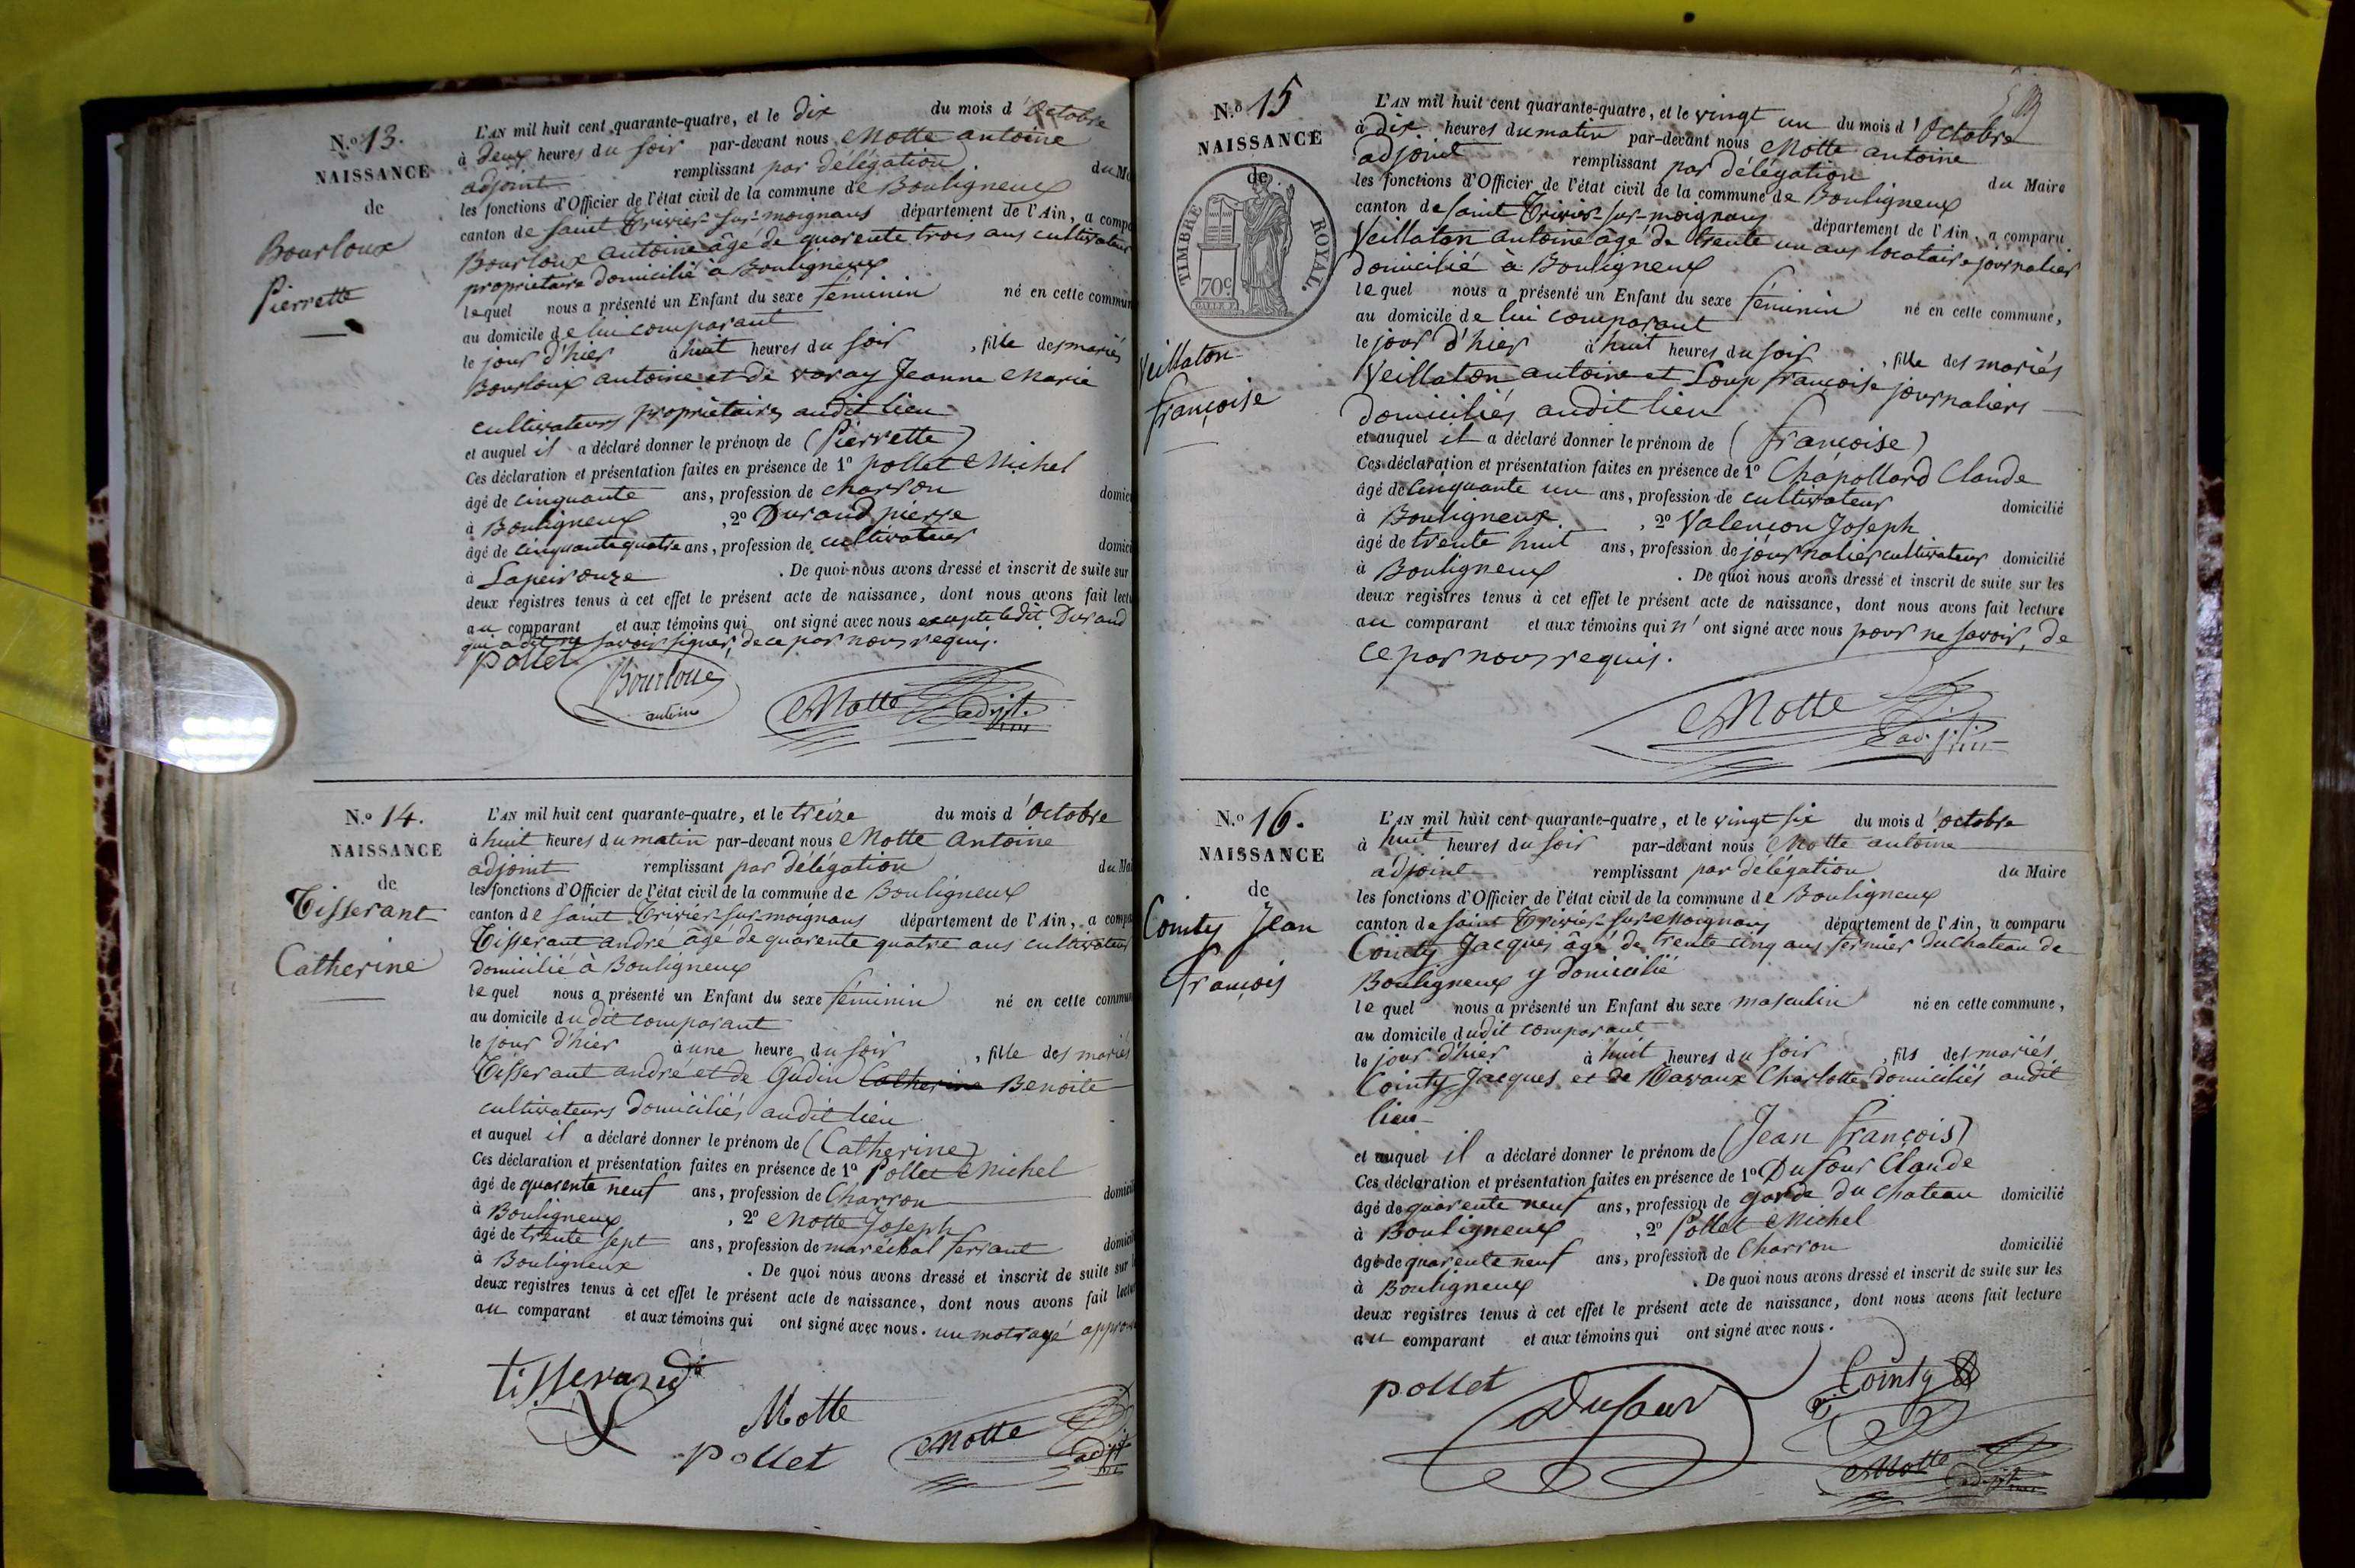 N.º 13.
NAISSANCE
de
Bourloux
Pierrette
L'AN mil huit cent quarante-quatre, et le dix du mois d'Octobre
à deux heures du soir par-devant nous Motte antoine
adjoint remplissant par délégation du
les fonctions d'Officier de l'état civil de la commune de Bouligneux
canton de saint Trivier-sur-moignans département de l'Ain, a
Bourloux antoine âgé de quarente trois ans cultivateur
propriétaire domicilié à Bouligneux
lequel nous a présenté un Enfant du sexe féminin né en cette
au domicile de lui comparant
le jour d'hier à huit heures du soir, fille des mariés
Bourloux antoine et de varay Jeanne Marie
cultivateurs propriétaires audit lieu
et auquel il a déclaré donner le prénom de (Pierrette)
Ces déclaration et présentation faites en présence de 1º pollet Michel
âgé de cinquante ans, profession de charron
à Bouligneux, 2º Durand pierre
âgé de cinquante quatre ans, profession de cultivateur
à Lapeirouze. De quoi nous avons dressé et inscrit de suite sur
deux registres tenus à cet effet le présent acte de naissance, dont nous avons fait
au comparant et aux témoins qui ont signé avec nous excepté ledit Durand
qui a dit ne savoir signer, de ce par nous requis.
pollet
Bourloux
antoine
Motte adjt.
N.º 14.
NAISSANCE
de
Tisserant
Catherine
L'AN mil huit cent quarante-quatre, et le treize du mois d'Octobre
à huit heures du matin par-devant nous Motte Antoine
adjoint remplissant par délégation du
les fonctions d'Officier de l'état civil de la commune de Bouligneux
canton de saint Trivier-sur-moignans département de l'Ain, a
Tisserant andré âgé de quarente quatre ans cultivateur
domicilié à Bouligneux
lequel nous a présenté un Enfant du sexe féminin né en cette
au domicile dudit comparant
le jour d'hier à une heure du soir, fille des mariés
Tisserant andré et de Gudin Catherine Benoite
cultivateurs domiciliés audit lieu
et auquel il a déclaré donner le prénom de (Catherine)
Ces déclaration et présentation faites en présence de 1º Pollet Michel
âgé de quarente neuf ans, profession de Charron
à Bouligneux, 2º Motte Joseph
âgé de trente sept ans, profession de maréchal ferrant
à Bouligneux. De quoi nous avons dressé et inscrit de suite sur
deux registres tenus à cet effet le présent acte de naissance, dont nous avons fait
au comparant et aux témoins qui ont signé avec nous. un mot rayé
tisserand
Motte
pollet
Motte adjt
N.º 15
NAISSANCE
de
TIMBRE ROYAL
70c.
Veillaton
françoise
L'AN mil huit cent quarante-quatre, et le vingt un du mois d'Octobre
à dix heures du matin par-devant nous Motte antoine
adjoint remplissant par délégation du Maire
les fonctions d'Officier de l'état civil de la commune de Bouligneux
canton de saint Trivier-sur-moignans département de l'Ain, a comparu
Veillaton antoine âgé de trente un ans locataire journalier
domicilié à Bouligneux
lequel nous a présenté un Enfant du sexe féminin né en cette commune,
au domicile de lui comparant
le jour d'hier à huit heures du soir, fille des mariés
Veillaton antoine et Loup françoise journaliers
domiciliés audit lieu
et auquel il a déclaré donner le prénom de (françoise)
Ces déclaration et présentation faites en présence de 1º Chapollard Claude
âgé de cinquante un ans, profession de cultivateur domicilié
à Bouligneux, 2º Valençon Joseph
âgé de trente huit ans, profession de journalier cultivateur domicilié
à Bouligneux. De quoi nous avons dressé et inscrit de suite sur les
deux registres tenus à cet effet le présent acte de naissance, dont nous avons fait lecture
au comparant et aux témoins qui n'ont signé avec nous pour ne savoir, de
ce par nous requis.
Motte
N.º 16.
NAISSANCE
de
Cointy Jean
françois
L'AN mil huit cent quarante-quatre, et le vingt six du mois d'octobre
à huit heures du soir par-devant nous Motte antoine
adjoint remplissant par délégation du Maire
les fonctions d'Officier de l'état civil de la commune de Bouligneux
canton de saint Trivier-sur-Moignans département de l'Ain, a comparu
Cointy Jacques âgé de trente cinq ans fermier du chateau de
Bouligneux y domicilié
lequel nous a présenté un Enfant du sexe masculin né en cette commune,
au domicile dudit comparant
le jour d'hier à huit heures du soir, fils des mariés
Cointy Jacques et de Ravaux Charlotte domiciliés audit
lieu
et auquel il a déclaré donner le prénom de (Jean françois)
Ces déclaration et présentation faites en présence de 1º Dufour Claude
âgé de quarente neuf ans, profession de garde du chateau domicilié
à Bouligneux, 2º Pollet Michel
âgé de quarente neuf ans, profession de Charron domicilié
à Bouligneux. De quoi nous avons dressé et inscrit de suite sur les
deux registres tenus à cet effet le présent acte de naissance, dont nous avons fait lecture
au comparant et aux témoins qui ont signé avec nous.
pollet
Dufour
Cointy
Motte adjt